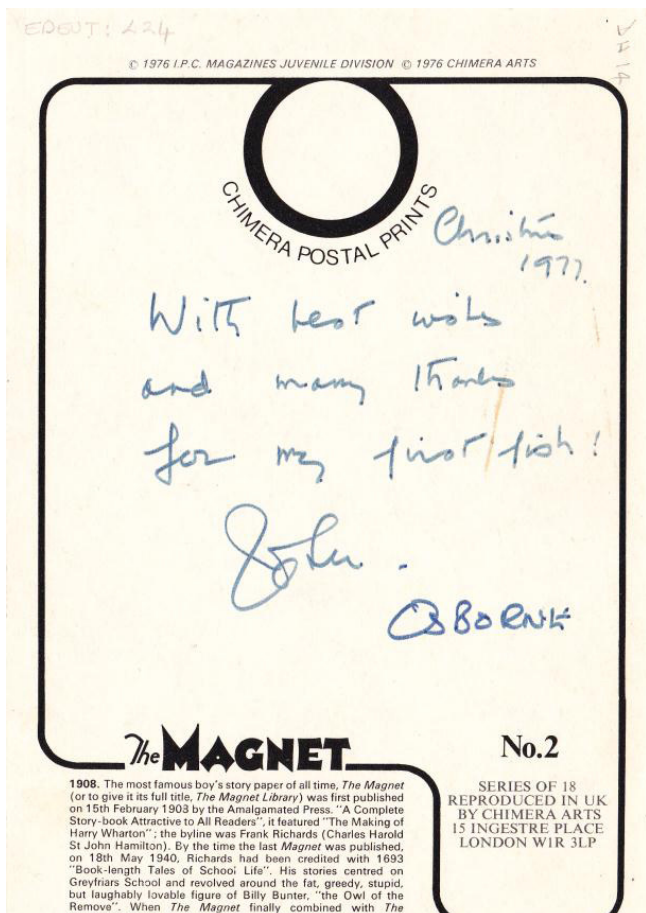 EDEUT: £24
© 1976 I.P.C. MAGAZINES JUVENILE DIVISION © 1976 CHIMERA ARTS
CHIMERA POSTAL PRINTS
1977.
With best wishes
and many thanks
for my first fish!
John.
OSBORNE
The MAGNET
1908. The most famous boy's story paper of all time, The Magnet
(or to give it its full title, The Magnet Library) was first published
on 15th February 1908 by the Amalgamated Press. "A Complete
Story-book Attractive to All Readers", it featured "The Making of
Harry Wharton"; the byline was Frank Richards (Charles Harold
St John Hamilton). By the time the last Magnet was published,
on 18th May 1940, Richards had been credited with 1693
"Book-length Tales of School Life". His stories centred on
Greyfriars School and revolved around the fat, greedy, stupid,
but laughably lovable figure of Billy Bunter, "the Owl of the
Remove". When The Magnet finally combined with The
No.2
SERIES OF 18
REPRODUCED IN UK
BY CHIMERA ARTS
15 INGESTRE PLACE
LONDON W1R 3LP